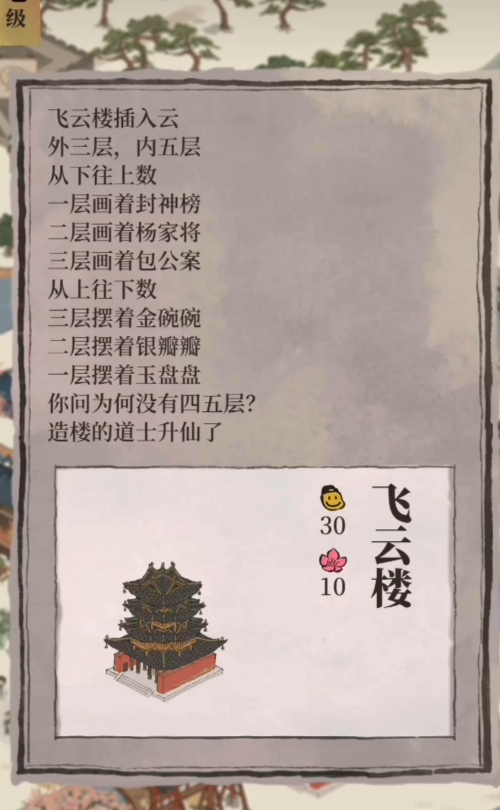 级
飞云楼插入云
外三层，内五层
从下往上数
一层画着封神榜
二层画着杨家将
三层画着包公案
从上往下数
三层摆着金碗碗
二层摆着银瓣瓣
一层摆着玉盘盘
你问为何没有四五层？
造楼的道士升仙了
飞云楼
30
10